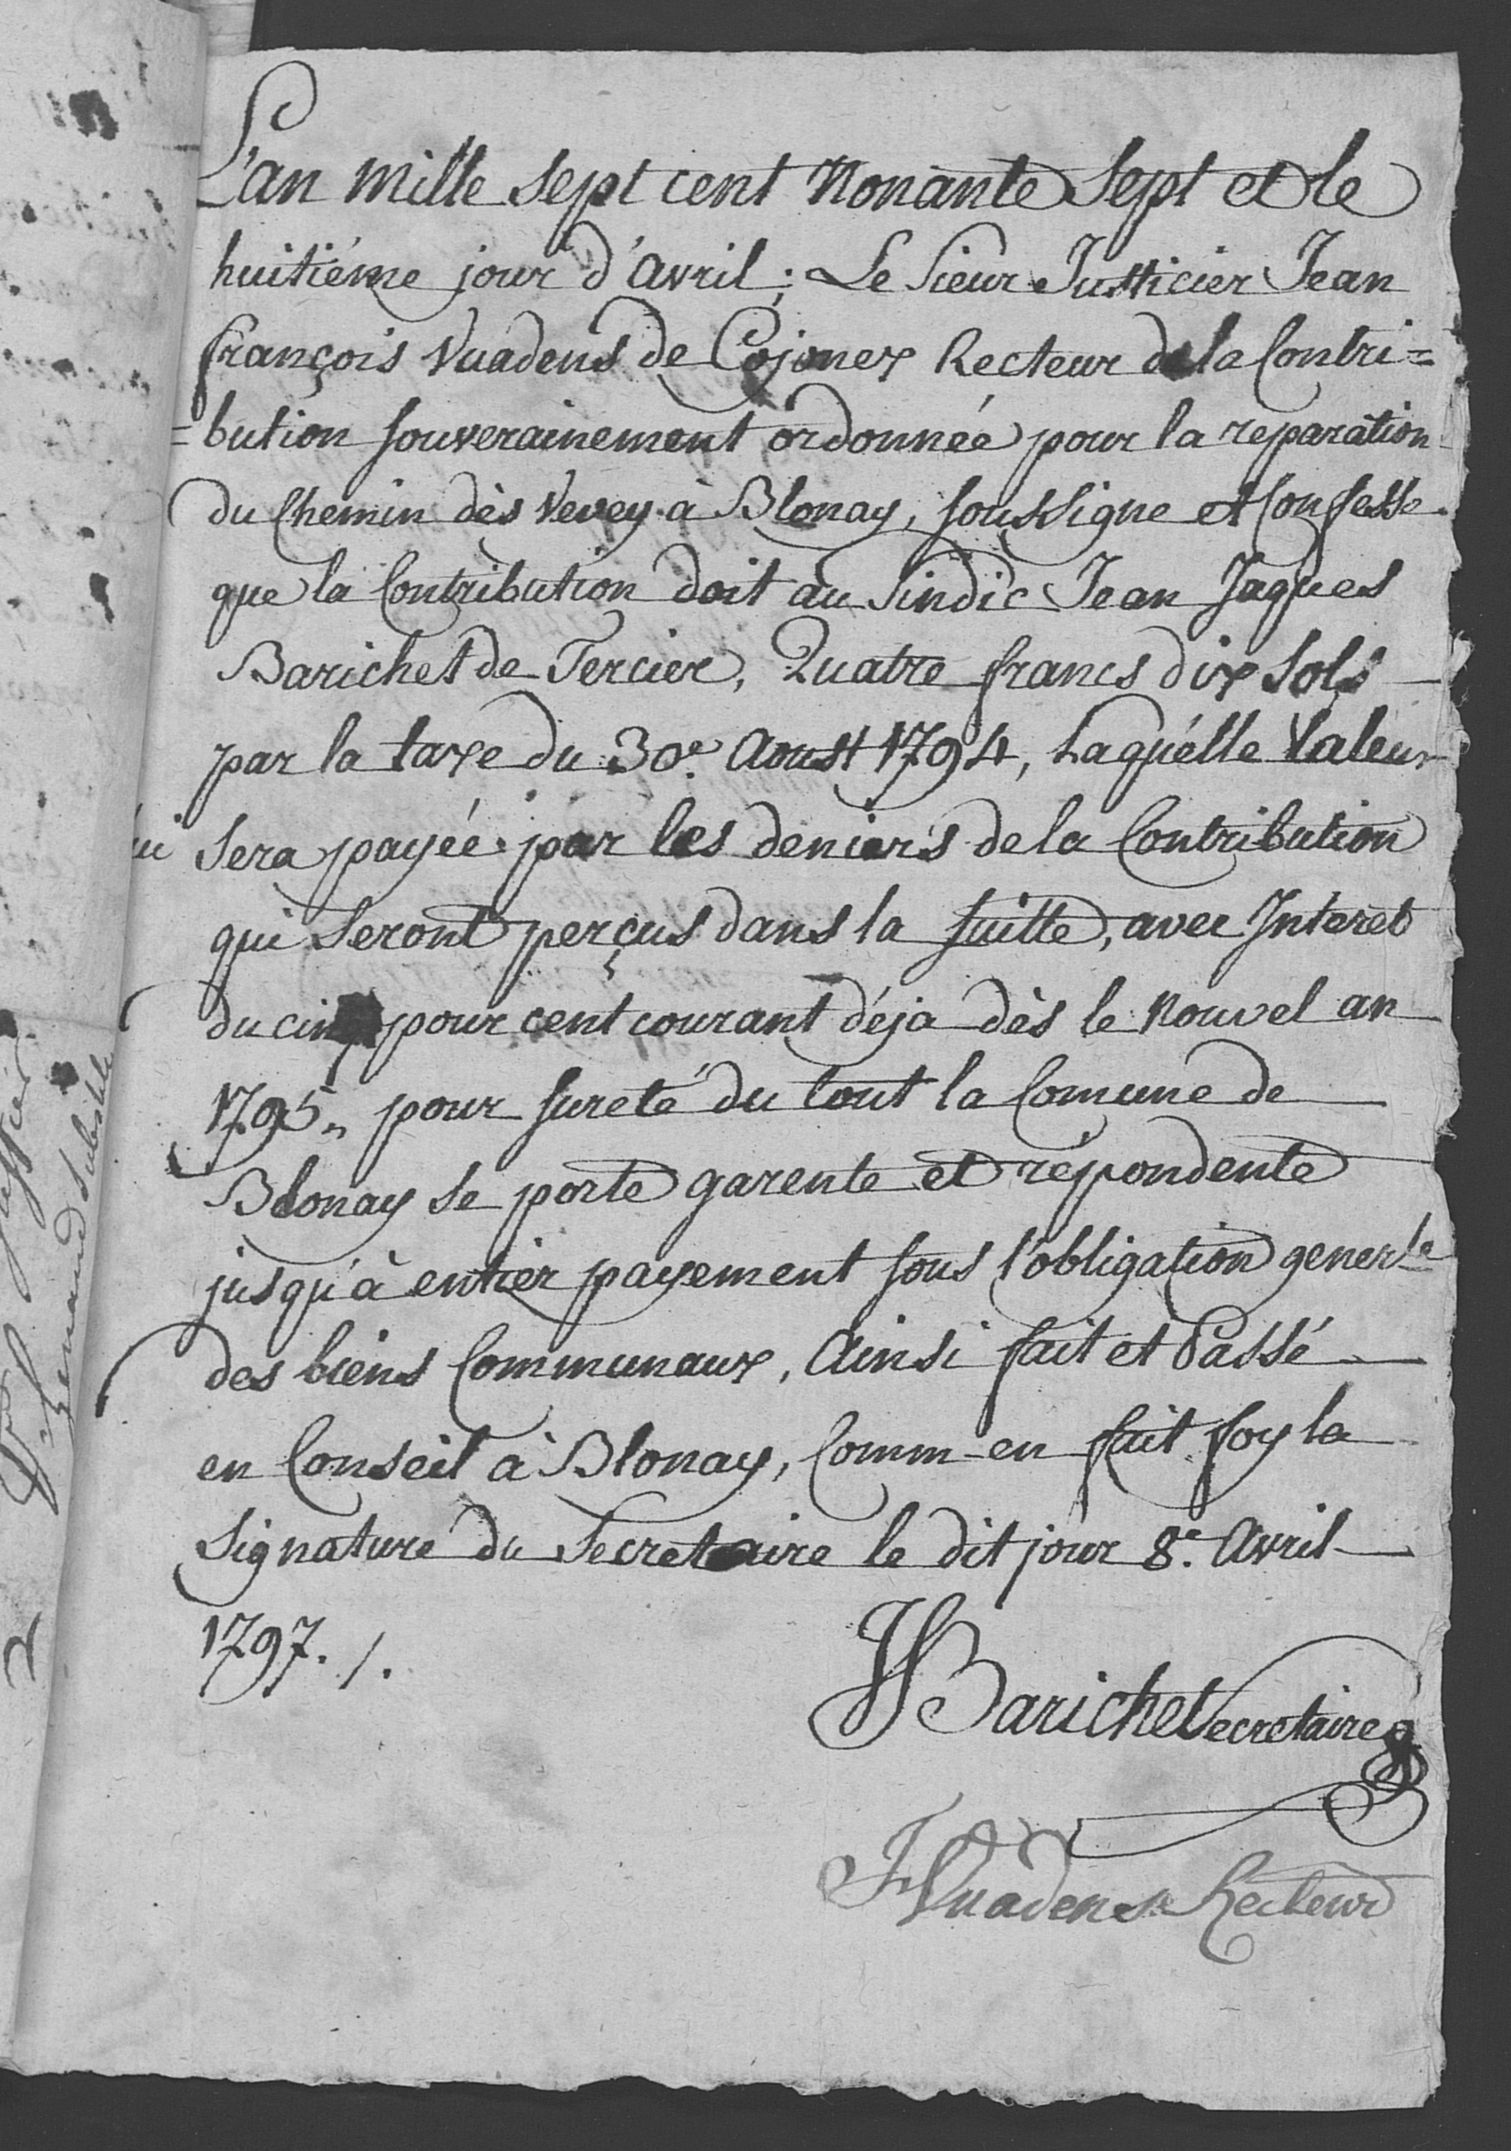 L'an mille sept cent nonante sept et le
huitiéme jour d'avril; Le Sieur Justicier Jean
françois Vuadens de Cojonex Recteur de la Contri=
=bution souverainement ordonnée pour la reparation
du Chemin dès Vevey à Blonay, soussigne et Confesse
que la Contribution doit au Sindic Jean Jaques
Barichet de Tercier, Quatre francs dix sols
par la taxe du 30e. Aoust 1794, Laquélle Valeur
lui sera payée par les deniers de la Contribution
qui seront perçus dans la suitte, avec Interet
du cinq pour cent courant déja dès le Nouvel an
1795, pour sureté du tout la Comune de
Blonay se porte garente et répondente
jusqu'à entier payement sous l'obligation generle
des biens Communaux, Ainsi fait et Passé
en Conseil à Blonay, Comm-en fait foy la
signature du Secretaire le dit jour 8e. Avril
1797. /.
Barichet Secretaire
Vuadens Recteur